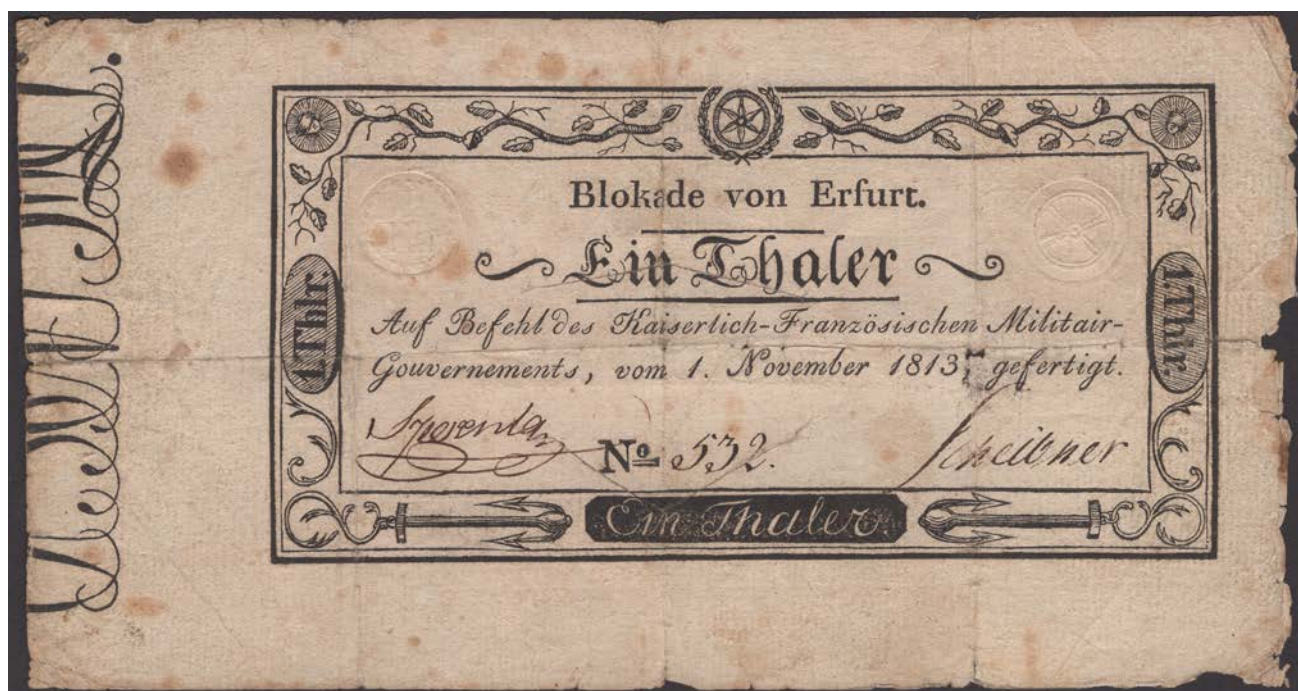 Blokade von Erfurt.
Ein Thaler
Auf Befehl des Kaiserlich-Französischen Militair-
Gouvernements, vom 1. November 1813, gefertigt.
1.Thlr.
1.Thlr.
No 532.
Scheibner
Ein Thaler.